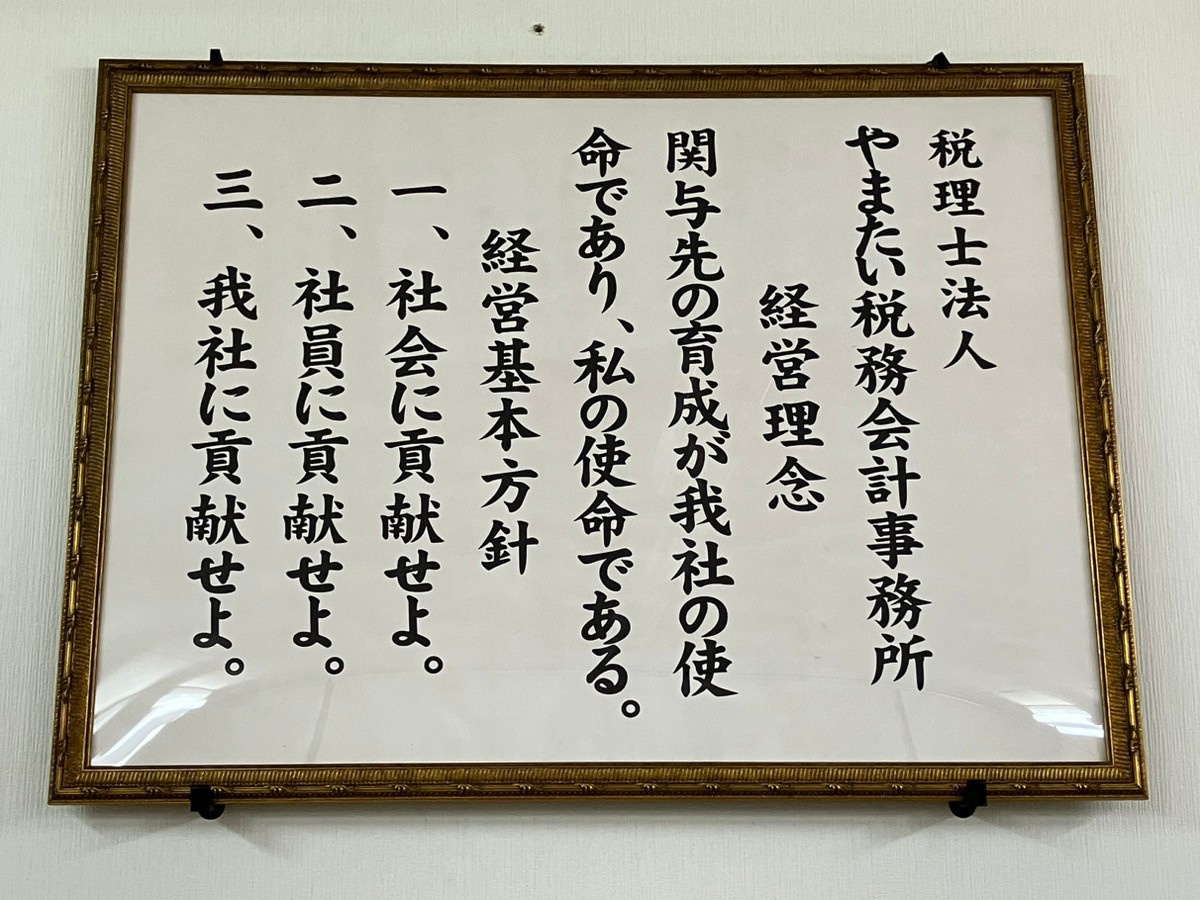 税理士法人
やまたい税務会計事務所
経営理念
関与先の育成が我社の使
命であり、私の使命である。
経営基本方針
一、社会に貢献せよ。
二、社員に貢献せよ。
三、我社に貢献せよ。